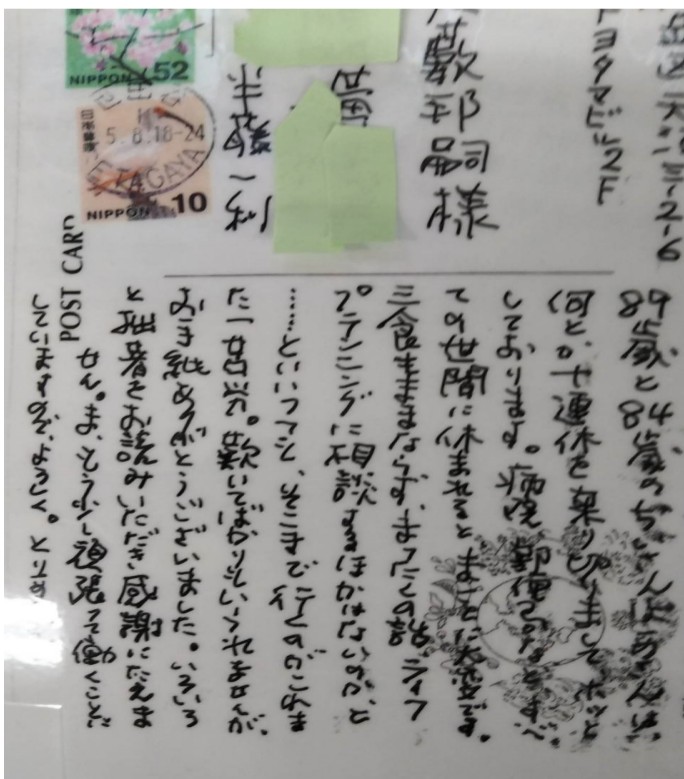 -2-6
トヨタマビル2F
邦嗣様
半藤一利
NIPPON 52
日本郵便
5.8.18-24
TAGAYA
NIPPON 10
POST CARD
89歳と84歳のぢいさんばあさんは、
何とか十連休を乗りこえましてホッと
しております。病院、郵便局など、すべ
ての世間に休まれるとまことに不便です。
三食もままならず、まったくの話
に相談するほかはないのか、と
……といっても、そこまで行くのがこれま
た一苦労。歎いてばかりもいられませんが。
お手紙ありがとうございました。いろいろ
と拙著をお読みいただき感謝にたえま
せん。ま、もう少し頑張って働くことに
していますのでよろしく。とりあ